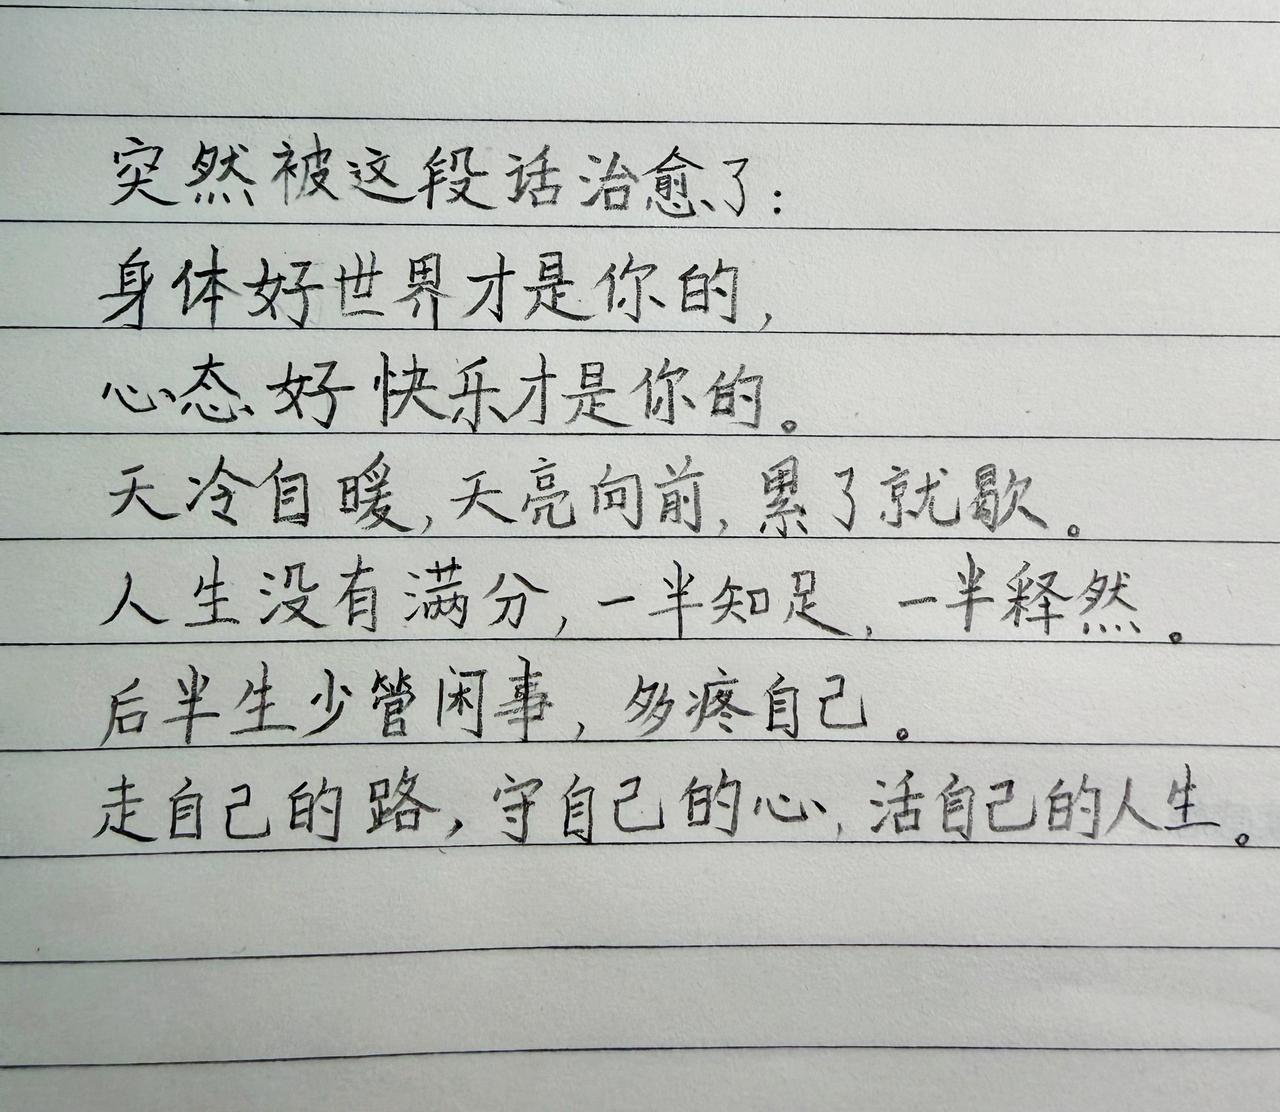 突然被这段话治愈了：
身体好世界才是你的，
心态好快乐才是你的。
天冷自暖，天亮向前，累了就歇。
人生没有满分，一半知足，一半释然。
后半生少管闲事，多疼自己。
走自己的路，守自己的心，活自己的人生。